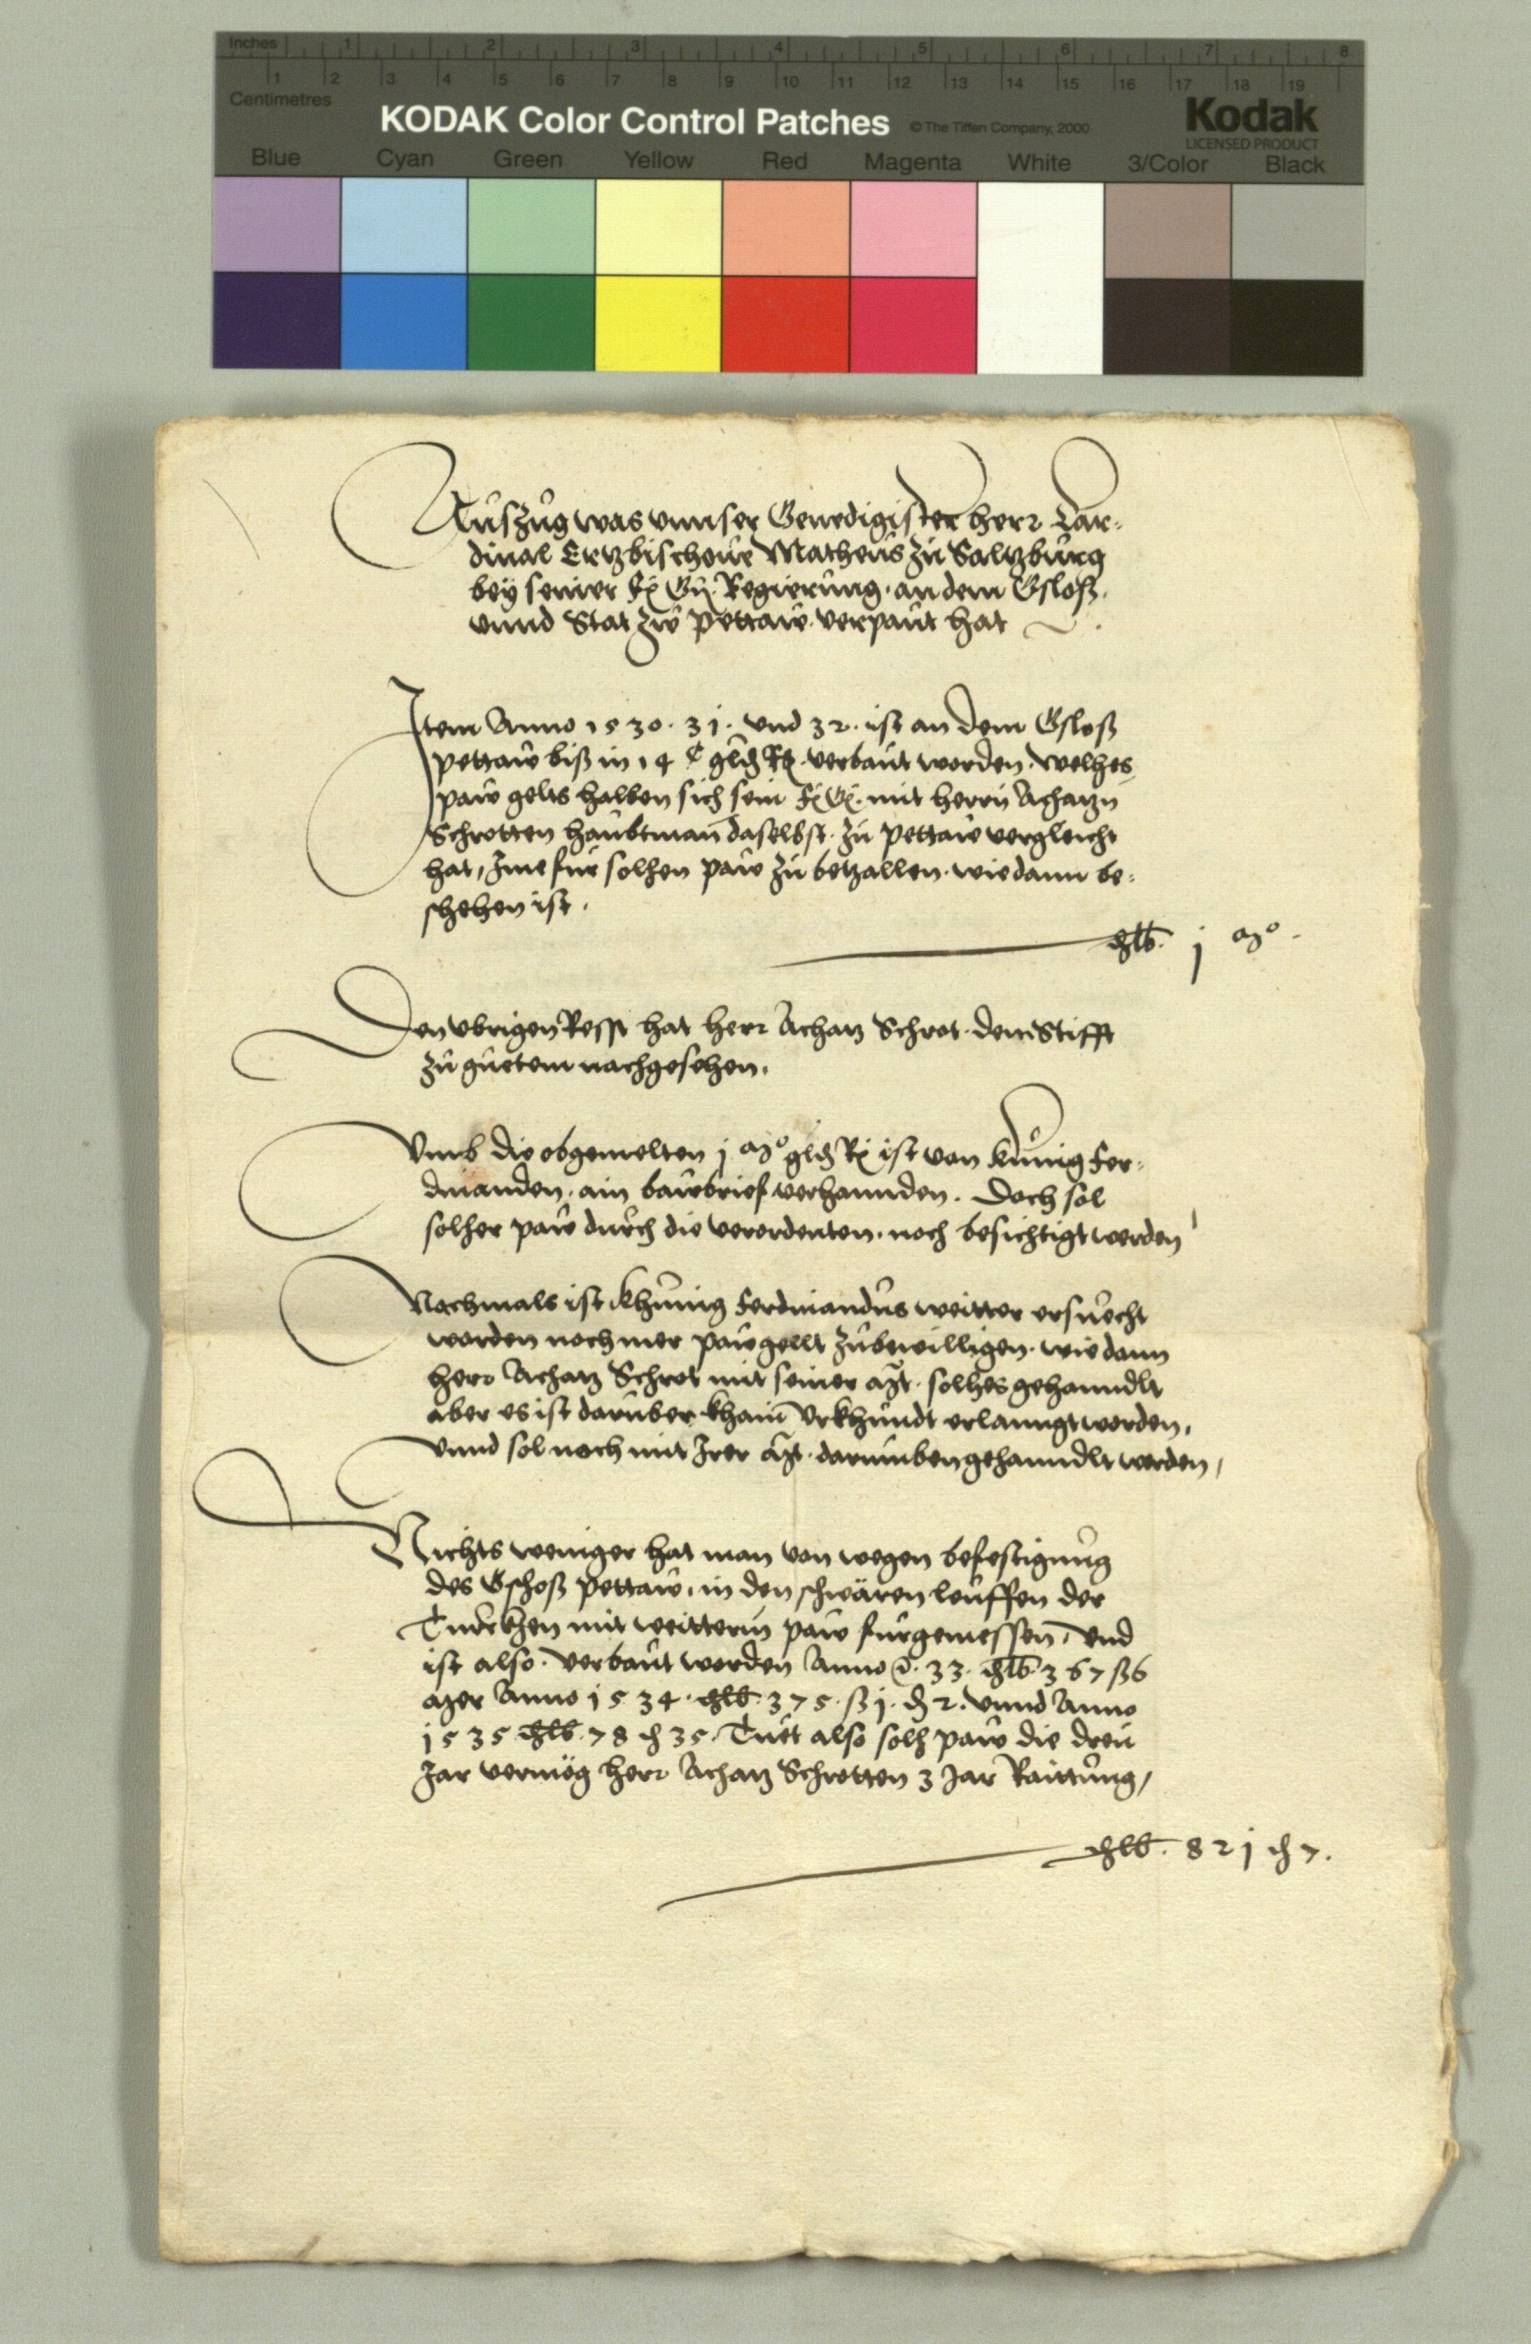 Inches 1 2 3 4 5 6 7 8
1 2 3 4 5 6 7 8 9 10 11 12 13 14 15 16 17 18 19
Centimetres
KODAK Color Control Patches © The Tiffen Company, 2000 Kodak
LICENSED PRODUCT
Blue Cyan Green Yellow Red Magenta White 3/Color Black
Auszug was unnser Genedigister herr Car-
dinal Ertzbischove Matheus zu Saltzburg
bey seiner Regierung an dem Gsloß
unnd Stat zw Pettaw verpaut hat
Item Anno 1530. 31. und 32. ist an dem Gsloß
Pettaw biß in 14 verbaut worden. welhes
paw gelts halben sich sein mit herrn Achatzn
Schrotten haubtman daselbst zu Pettaw vergleicht
hat, Ime fur solhen paw zu betzallen. wie dann be-
schehen ist.
j
Den ubrigen Resst hat herr Achatz Schrot dem Stifft
zu guetem nachgesehen.
Umb die obgemelten j ist von kunig Fer-
dinanden. ain bawbrief verhannden. Doch sol
solher paw durch die verordenten. noch besichtigt werden
Nachmals ist Khunig Ferdinandus weitter ersuecht
worden noch mer pawgellt zubewilligen. wie dann
herr Achatz Schrot mit seiner solhes gehanndlt
aber es ist daruber khain Urkhundt erlanngt worden,
Unnd sol noch mit Irer darumben gehanndlt werden,
Nichts weniger hat man von wegen befestigung
des Gschoß Pettaw. in den schwären leuffen der
Turkhen mit weitterm paw furgemessen, und
ist also. verbaut worden Anno 33. 367 ß 6
Anno 1534. 375. ß j. 2. unnd Anno
1535 78 35. Tuet also solh paw die dreu
Jar vermög herr Achatz Schrotten 3 Jar Raittung,
821 7.